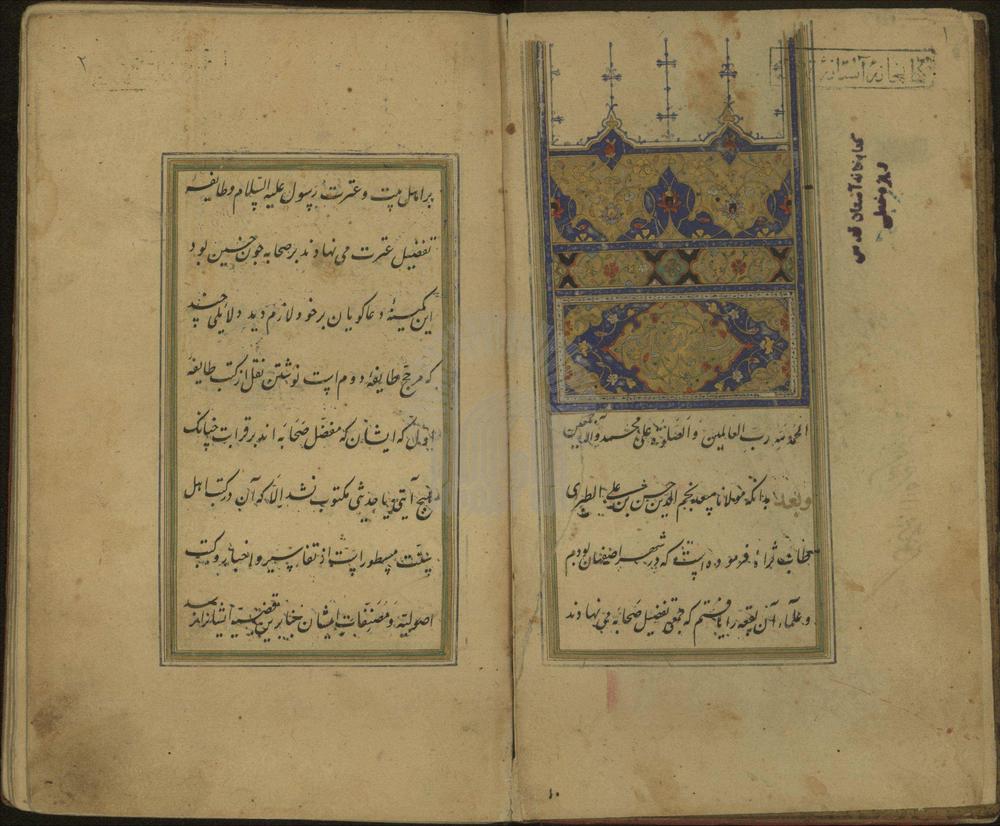 ۱
کتابخانهٔ آستانهٔ
کتابخانه آستان قدس
الحمد لله رب العالمین والصلوة علی محمد وآله اجمعین
وبعد بدانکه مولانا سعید نجم الدین حسن بن علی الطبری
طاب ثراه فرموده است که در شهر اصفهان بودم
و علماء آن بقعه را یافتم که جمعی تفضیل صحابه می نهادند
۲
بر اهل بیت و عترت رسول علیه السلام و طایفه
تفضیل عترت می نهادند بر صحابه جون جنین بود
این کمینهٔ دعاکویان بر خود لازم دید دلایلی چند
که مرجح طایفهٔ دوم است نوشتن نقل از کتب طایفهٔ
اول که ایشان که مفضل صحابه اند بر قرابت چنانک
هیچ آیتی و یا حدیثی مکتوب نشد الا که آن در کتب اهل
سنت مسطور است از تفاسیر و اخبار و کتب
اصولیه و مصنفات ایشان